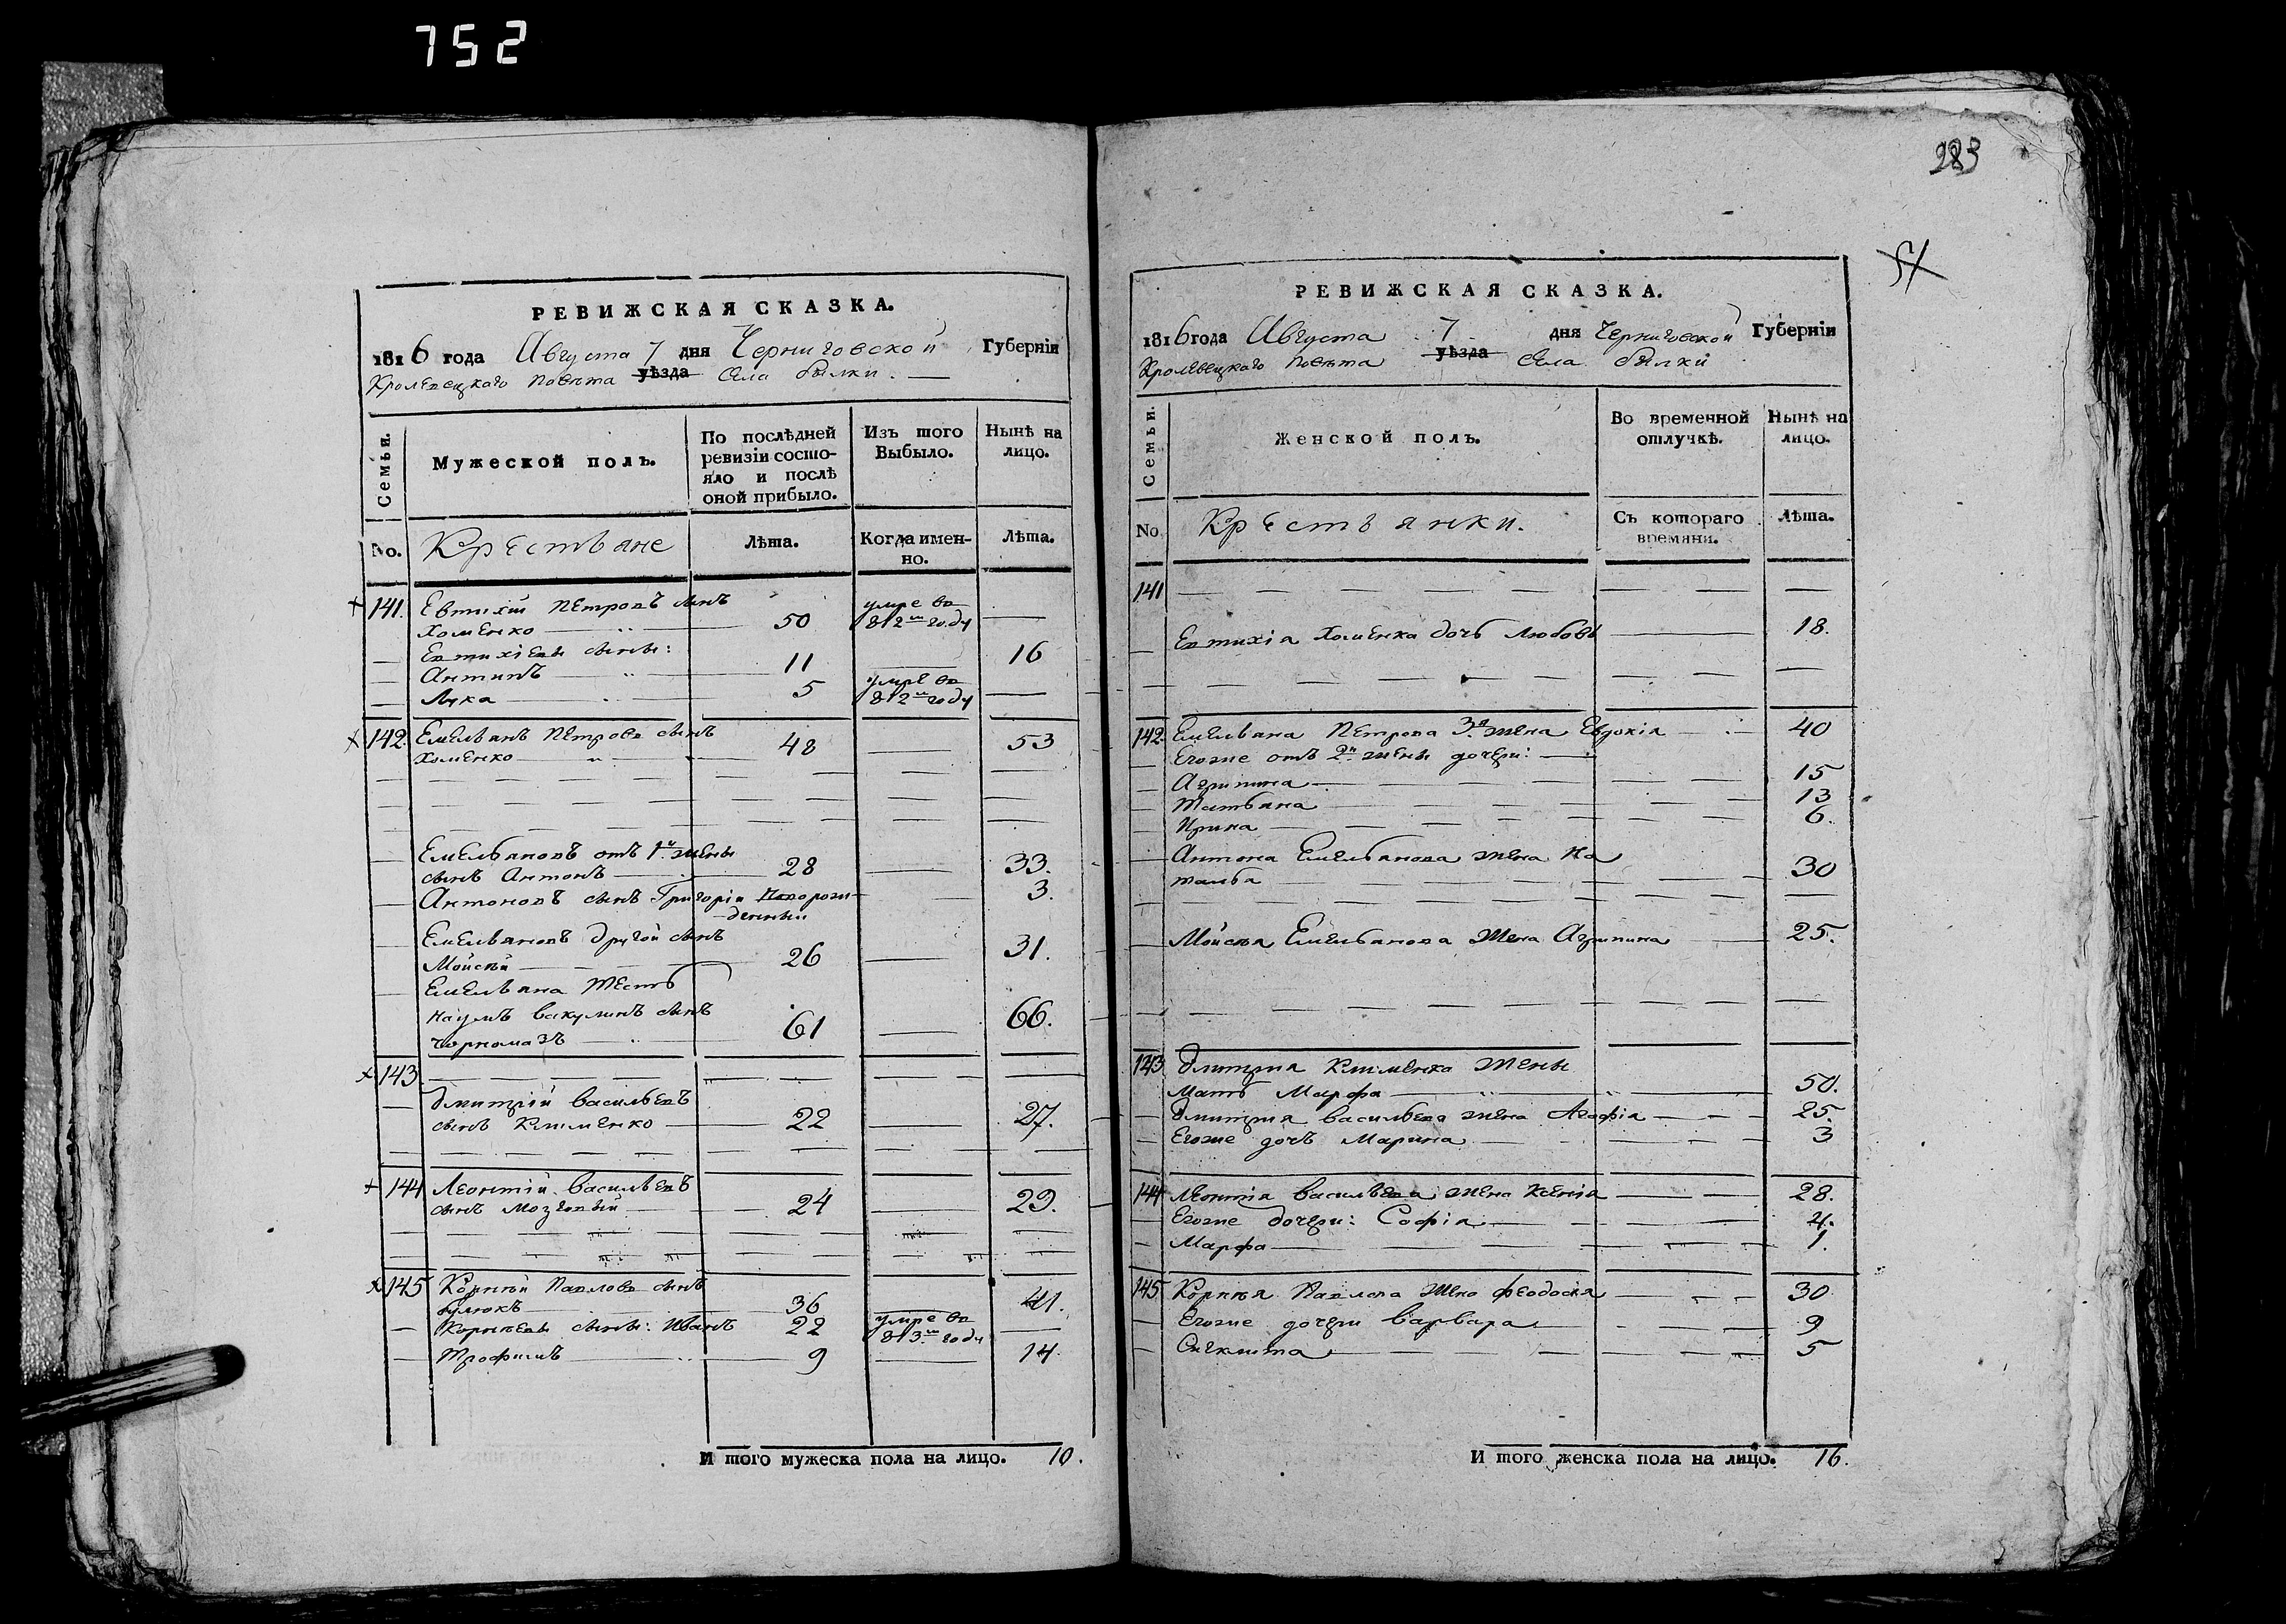 752
283
54
РЕВИЖСКАЯ СКАЗКА.
1816 года Августа 7 дня Черниговской Губерніи
Кролевецкаго повѣта уѣзда Села Билки.
Семьи.
Мужеской полъ.
По послѣдней ревизіи состояло и послѣ оной прибыло.
Изъ того Выбыло.
Нынѣ на лицо.
No. Крестьяне Лѣта. Когда именно. Лѣта.
141. Евтихій Петровъ сынъ
Хоменко 50 умре въ 812м году
Евтихіевы сыны:
Антипъ 11 16
Лука 5 умре въ 812м году
142. Емельянъ Петровъ сынъ 48 53
Хоменко
Емельяновъ отъ 1й жены
сынъ Антонъ 28 33.
Антоновъ сынъ Григорій новорожденный 3.
Емельяновъ другой сынъ
Мойсѣй 26 31.
Емельяна тесть
Наумъ Вакулинъ сынъ
Чорномазъ 61 66.
143
Дмитрій Васильевъ
сынъ Клименко 22 27.
144 Леонтій Васильевъ
сынъ Мозговый 24 29.
145 Корнѣй Павловъ сынъ
Кулюкъ 36 41.
Корнѣевы сыны: Иванъ 22 умре въ 813м году
Трофимъ 9 14.
И того мужеска пола на лицо. 10.
РЕВИЖСКАЯ СКАЗКА.
1816 года Августа 7 дня Черниговской Губерніи
Кролевецкаго повѣта уѣзда Села Билки
Семьи.
Женской полъ.
Во временной отлучкѣ.
Нынѣ на лицо.
No Крестьянки. Съ котораго времяни. Лѣта.
141
Евтихія Хоменка дочь Любовь 18.
142 Емельяна Петрова 3я жена Евдокія 40
Егоже отъ 2й жены дочери:
Агрипина 15
Татьяна 13
Ирина 6.
Антона Емельянова жена На
талья 30
Мойсѣя Емельянова жена Агрипина 25.
143 Дмитрія Клименка жены
мать Марфа 50.
Дмитрія Васильева жена Агафія 25.
Егоже дочь Марина 3
144 Леонтія Васильева жена Ксенія 28.
Егоже дочери: Софія 4.
Марфа 1.
145 Корнѣя Павлова жена Феодосія 30
Егоже дочери Варвара 9
Сиклита 5
И того женска пола на лицо. 16.